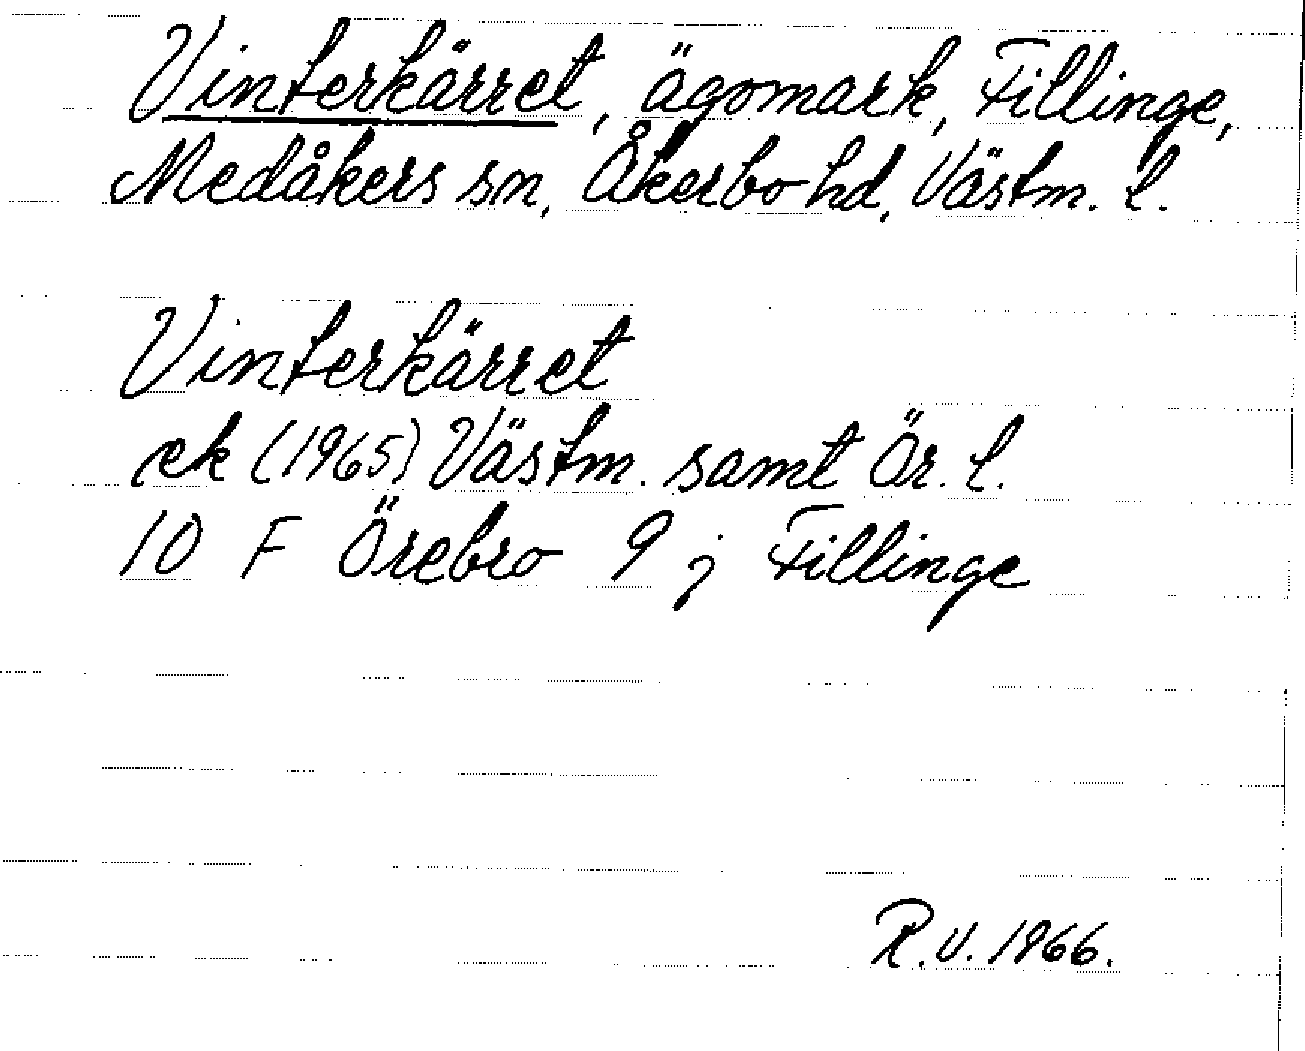 Vinterkärret, ägomark, Fillinge,
Medåkers sn, Åkerbo hd, Västm. l.
Vinterkärret
ek (1965) Västm. samt Ör. l.
10 F Örebro 9 j Fillinge
R.V. 1966.